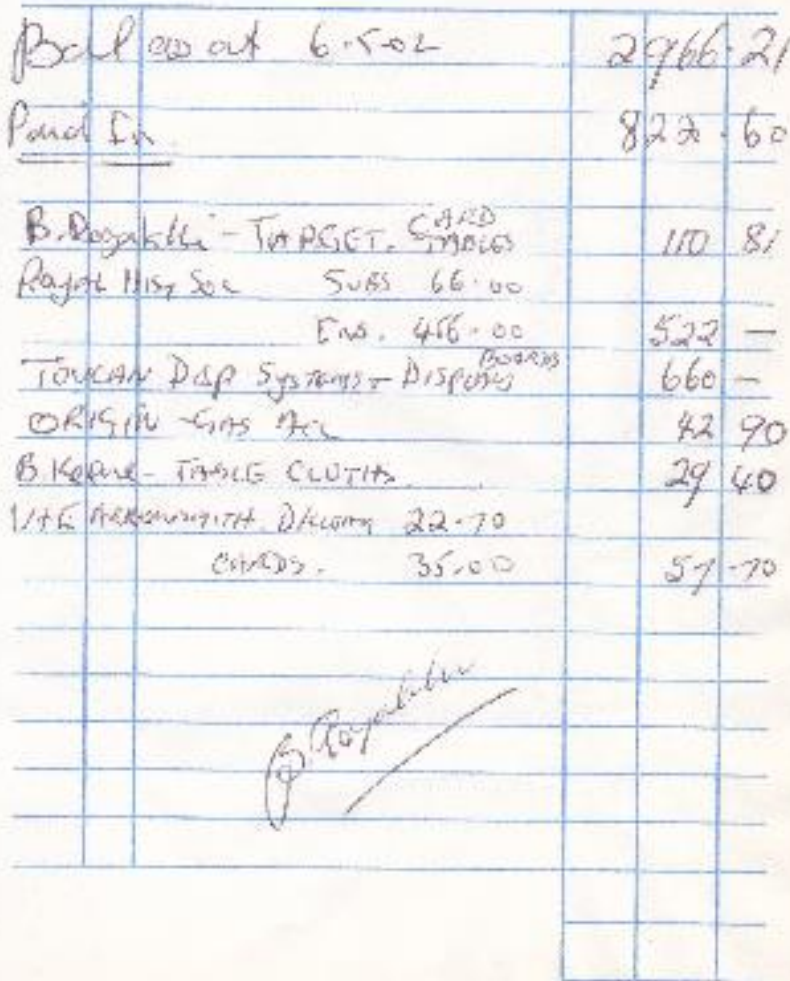 Bal as at 6.5.02 2966.21
Paid In 822.60
B. - TARGET. CARD TABLES 110 81
Royal Hist Soc SUBS 66.00
INS. 456.00 522 —
TOUCAN DISP SYSTEMS - DISPLAY BOARDS 660 —
ORIGIN - GAS Acc 42 90
B Keane - TABLE CLOTHS 29 40
V+E ARROWSMITH 22.70
CARDS. 35.00 57.70
B.